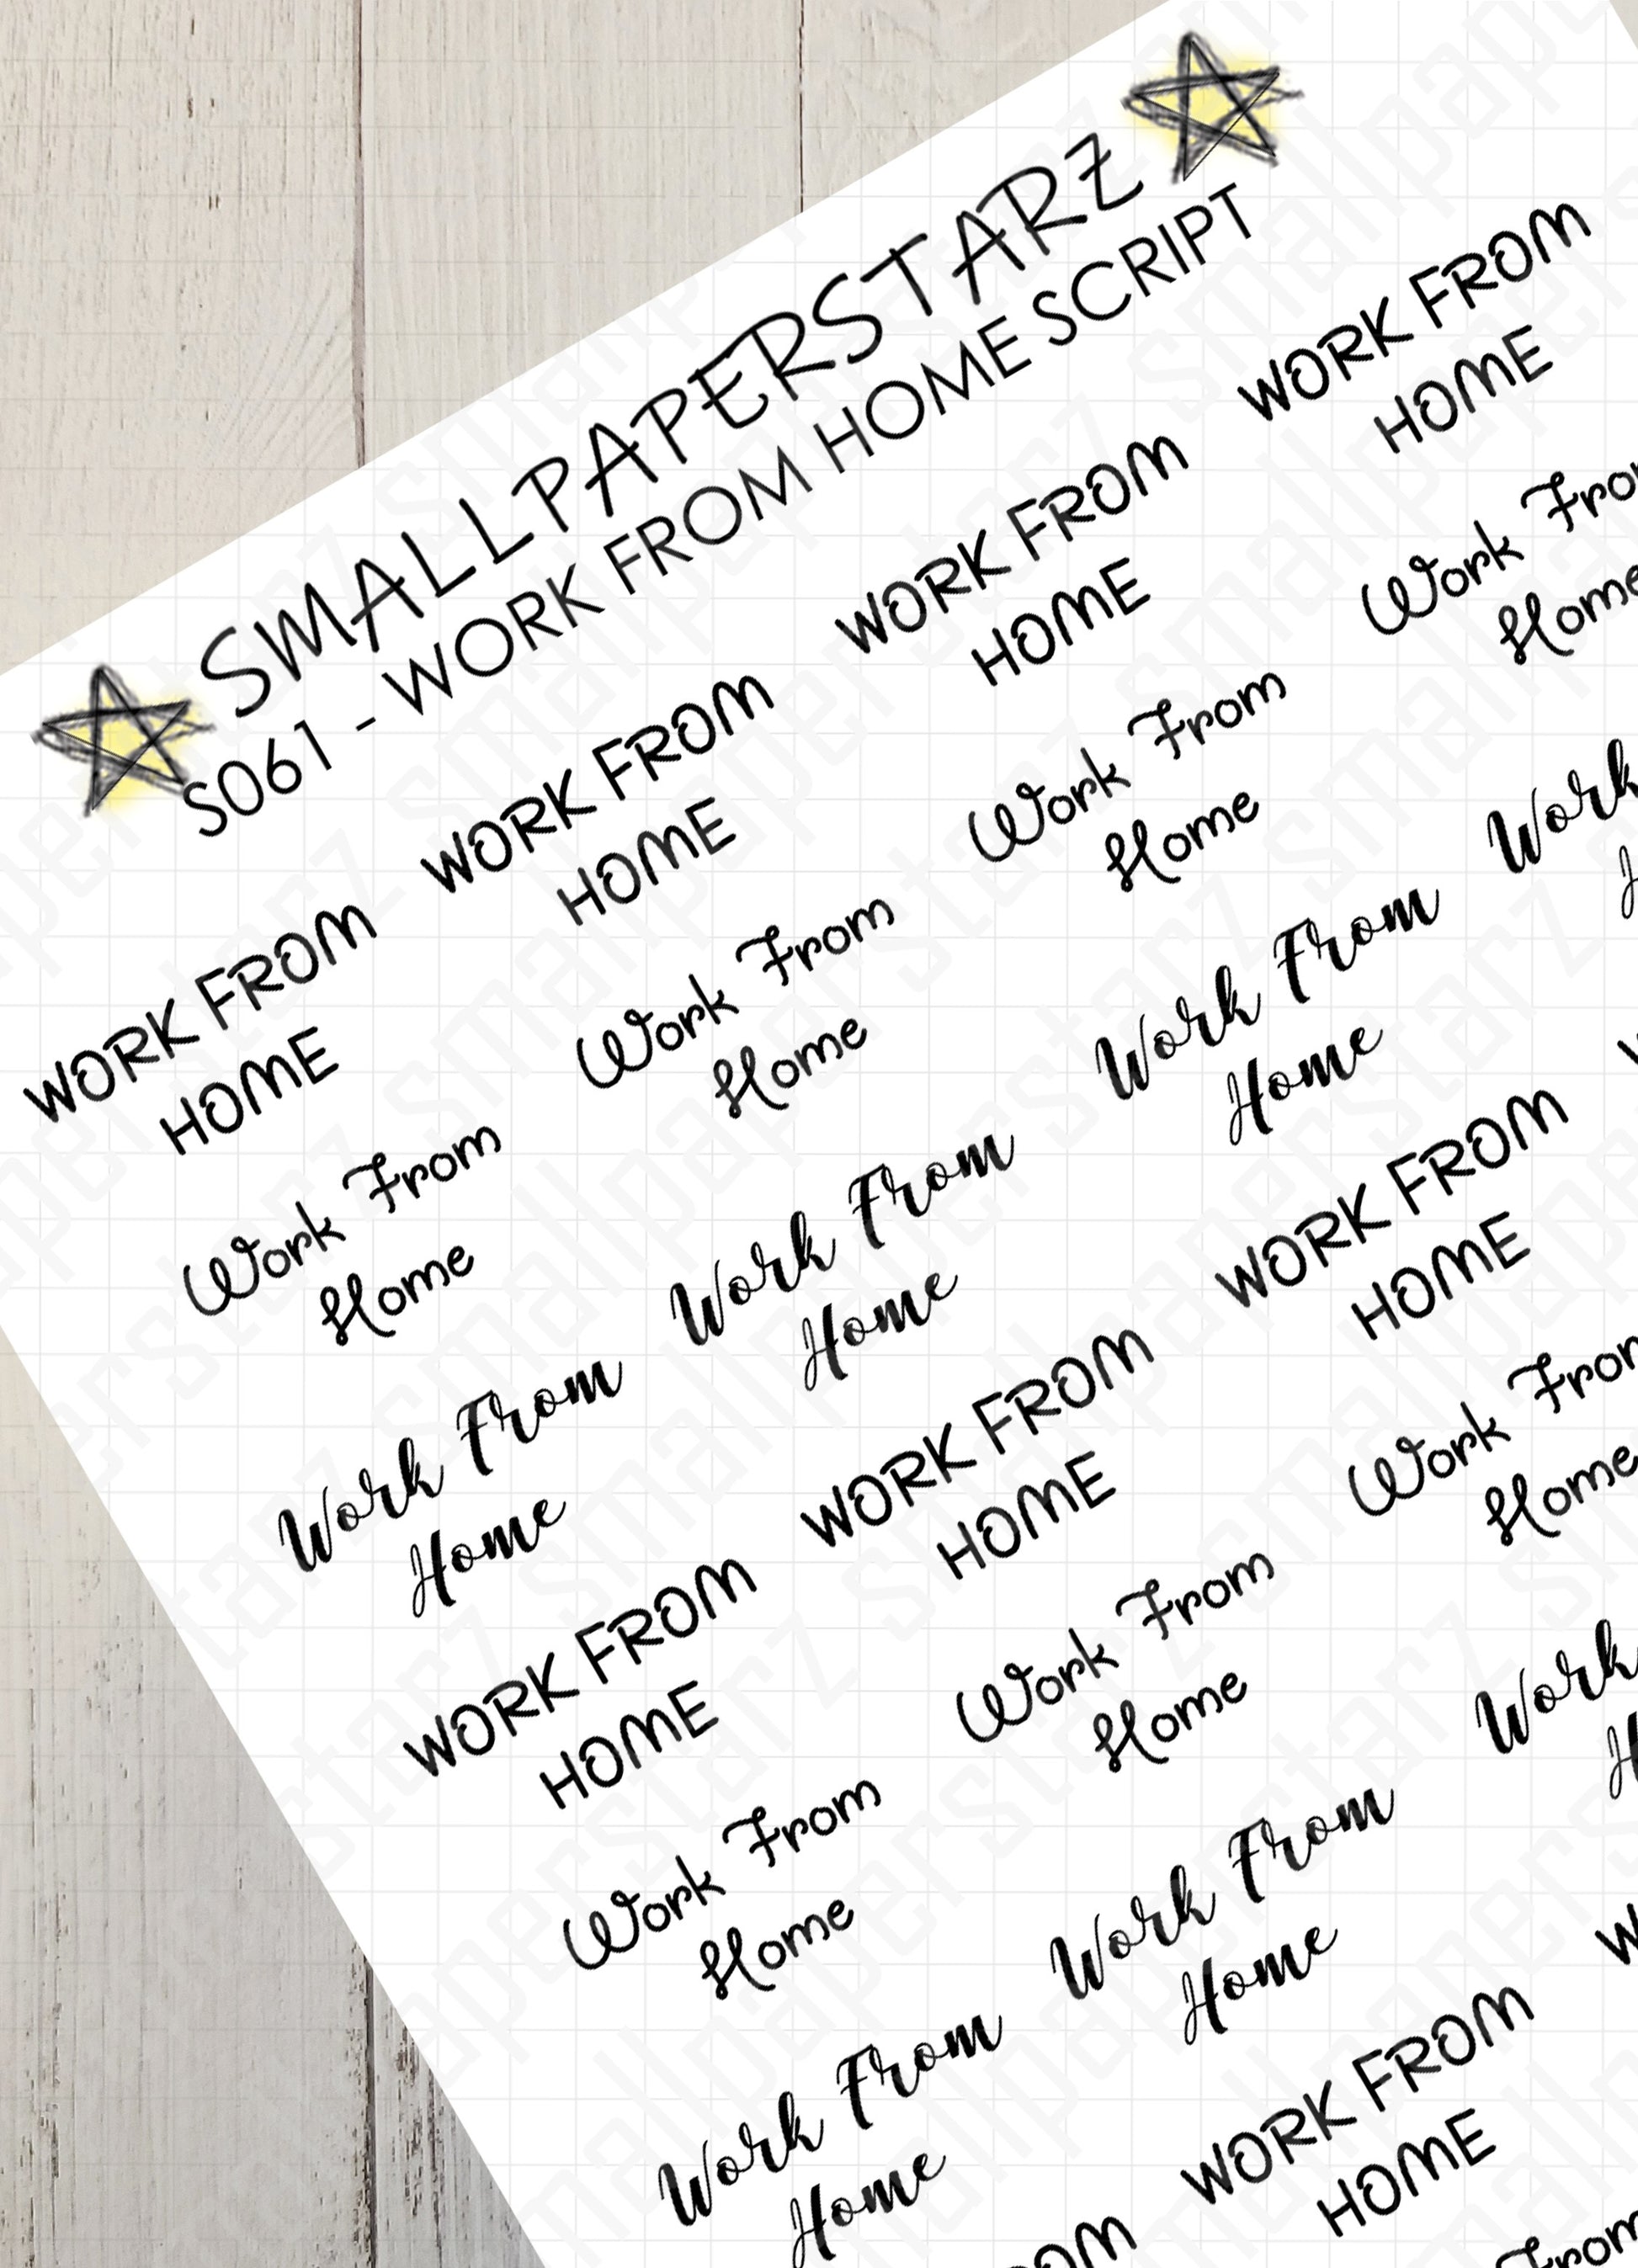 SMALLPAPERSTARZ
S061 - WORK FROM HOME SCRIPT
WORK FROM
HOME
WORK FROM
HOME
WORK FROM
HOME
WORK FROM
HOME
Work From
Home
Work From
Home
Work From
Home
Work
Home
Work From
Home
Work From
Home
Work From
Home
Work
WORK FROM
HOME
WORK FROM
HOME
WORK FROM
HOME
Work From
Home
Work From
Home
Work
Home
Work From
Home
Work From
Home
Work
WORK FROM
HOME
From